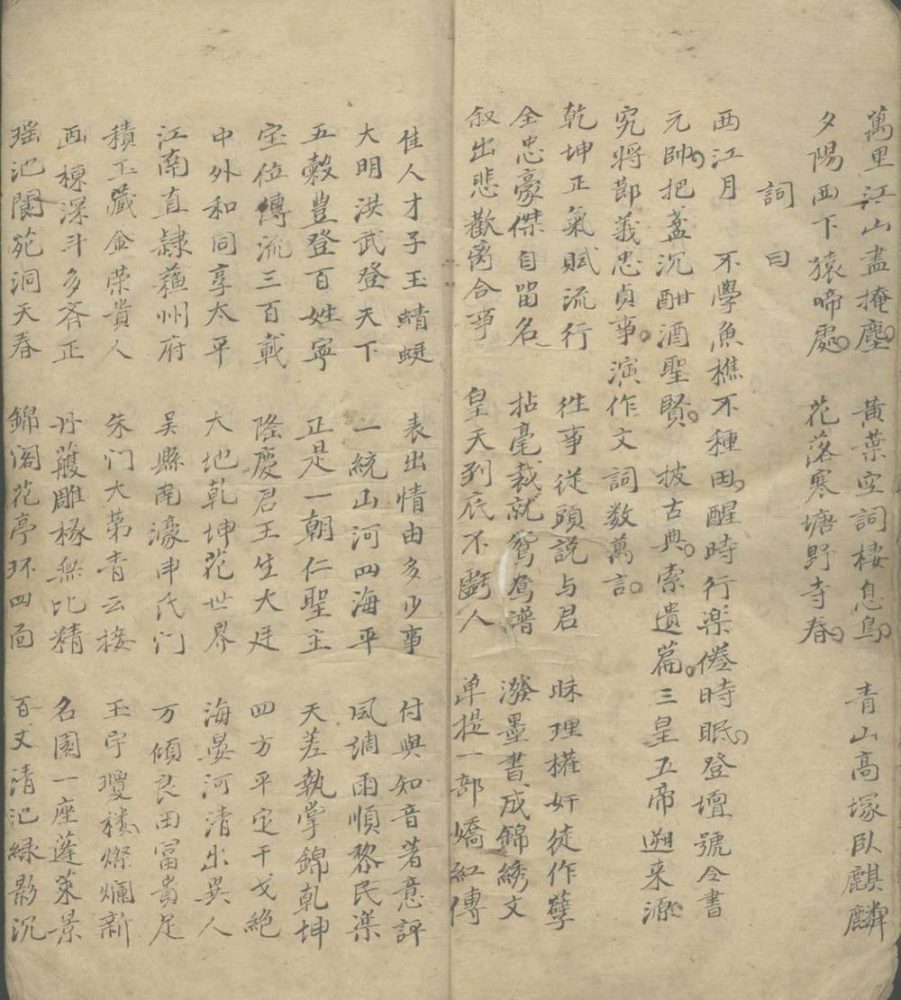 萬里江山盡掩塵 黃葉空詞棲息鳥 青山高塚臥麒麟
夕陽西下猿啼處 花落寒塘野寺春
詞曰
西江月 不學魚樵不種田醒時行楽倦時眠登壇號令書
元帥把盞沉酣酒聖賢 披古典索遺篇三皇五帝遡来源
究將節義忠貞事演作文詞数萬言
乾坤正氣賦流行 徃事從頭説与君 昧理權奸徒作孽
全忠豪傑自留名 拈毫裁就鴛鴦譜 潑墨書成錦綉文
叙出悲歡离合事 皇天到底不虧人 单提一部嬌紅傳
佳人才子玉蜻蜓 表出情由多少事 付與知音著意評
大明洪武登天下 一統山河四海平 風調雨順黎民楽
五穀豊登百姓寧 正是一朝仁聖主 天差執掌錦乾坤
宝位傳流三百載 隆慶君王坐大廷 四方平定干戈絶
中外和同享太平 大地乾坤花世界 海晏河清出異人
江南直隷蘓州府 吴縣南濠申氏门 万傾良田富貴足
積玉藏金荣貴人 朱门大第青云接 玉宇瓊楼燦爛新
画棟深斗多齐正 丹雘雕椽無比精 名園一座蓬萊景
瑶池閬苑洞天春 錦阁花亭环四面 百丈清池緑影沉